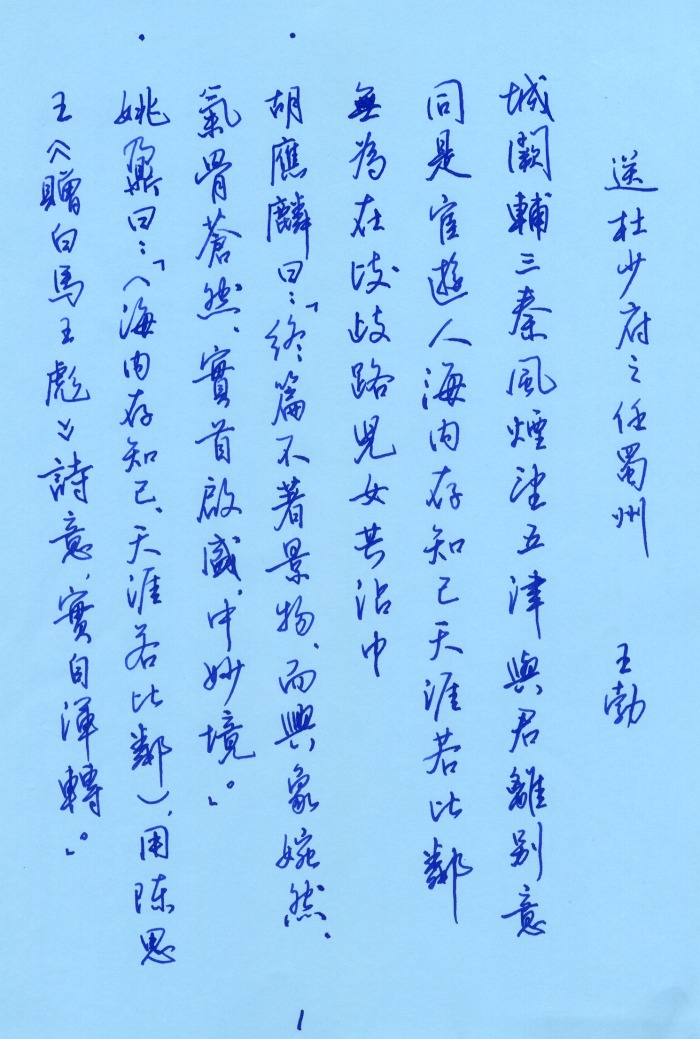 送杜少府之任蜀州　王勃
城闕輔三秦風煙望五津與君離別意
同是宦遊人海內存知己天涯若比鄰
無為在歧歧路兒女共沾巾
・胡應麟曰：「終篇不著景物、而興象婉然、
氣骨蒼然、實首啟盛、中妙境。」
・姚鼐曰：「（海內存知己、天涯若比鄰）、用陳思
王《贈白馬王彪》詩意、實自渾轉。」
1